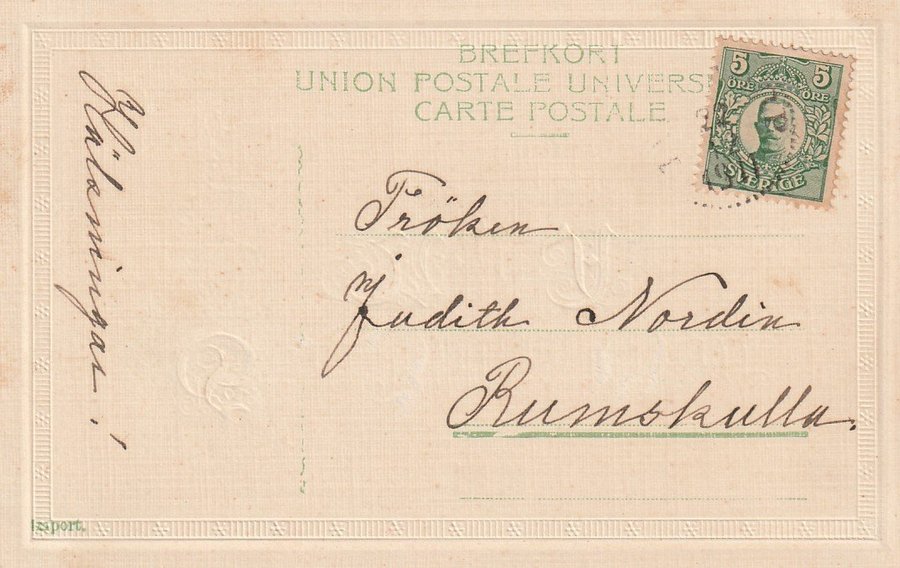 BREFKORT
UNION POSTALE UNIVERS
CARTE POSTALE
5 5
ÖRE ÖRE
SVERIGE
Fröken
Judith Nordin
Rumskulla.
Hälsningar!
Export.